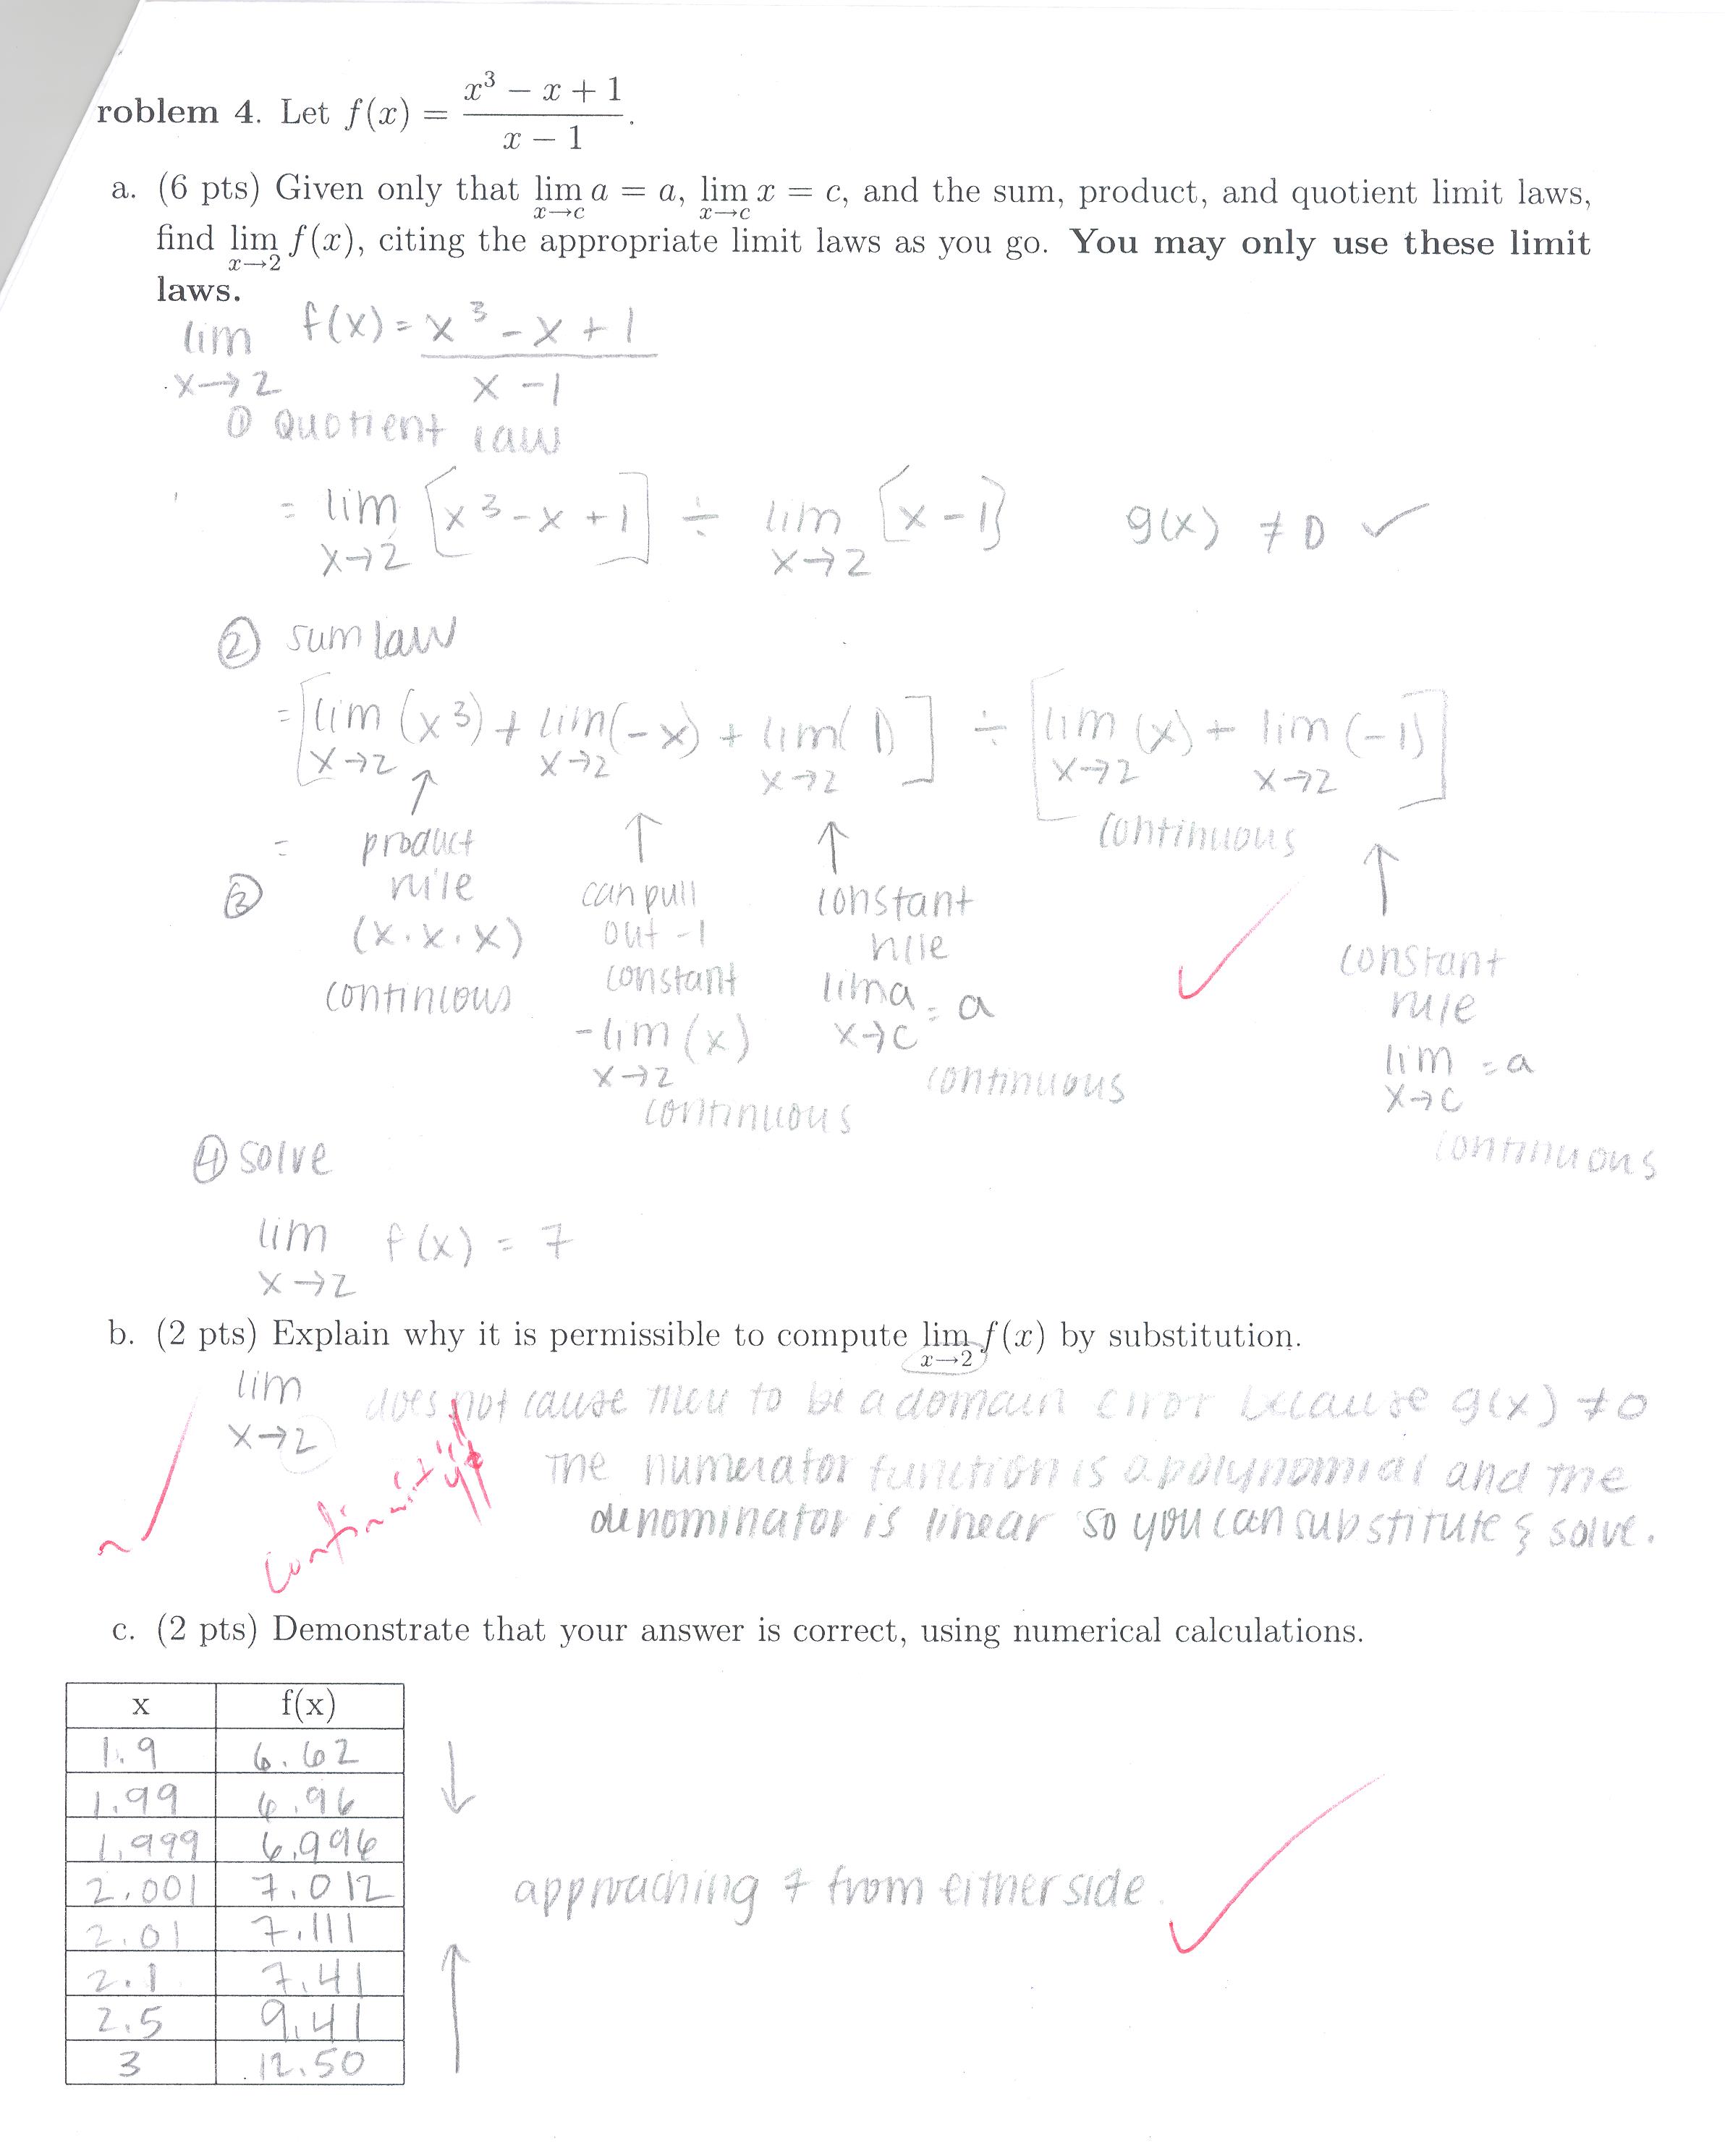 roblem 4. Let f(x) = (x³ − x + 1)/(x − 1).
a. (6 pts) Given only that lim x→c a = a, lim x→c x = c, and the sum, product, and quotient limit laws,
find lim x→2 f(x), citing the appropriate limit laws as you go. You may only use these limit
laws.
lim x→2 f(x) = (x³ - x + 1)/(x - 1)
① Quotient law
= lim x→2 [x³ - x + 1] ÷ lim x→2 [x - 1] g(x) ≠ 0 ✓
② sum law
= [lim x→2 (x³) + lim x→2 (-x) + lim x→2 (1)] ÷ [lim x→2 (x) + lim x→2 (-1)]
③ =
↑ product
rule
(x·x·x)
continuous
↑
can pull
out -1
constant
-lim x→2 (x)
continuous
↑
constant
rule
lim x→c a = a
continuous
continuous
↑
constant
rule
lim x→c = a
continuous
④ solve
lim x→2 f(x) = 7
b. (2 pts) Explain why it is permissible to compute lim x→2 f(x) by substitution.
lim x→2 does not cause to be a domain error because g(x) ≠ 0
The numerator function is a polynomial and the
denominator is linear so you can substitute & solve.
~✓
continuity
c. (2 pts) Demonstrate that your answer is correct, using numerical calculations.
x f(x)
1.9 6.62
1.99 6.96
1.999 6.996
2.001 7.012
2.01 7.111
2.1 7.41
2.5 9.41
3 12.50
approaching 7 from either side.